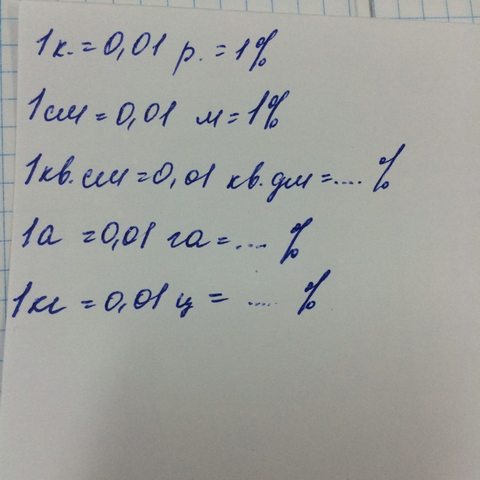 1к. = 0,01 р. = 1%
1см = 0,01 м = 1%
1кв.см = 0,01 кв.дм = .... %
1а = 0,01 га = .... %
1кг = 0,01 ц = .... %